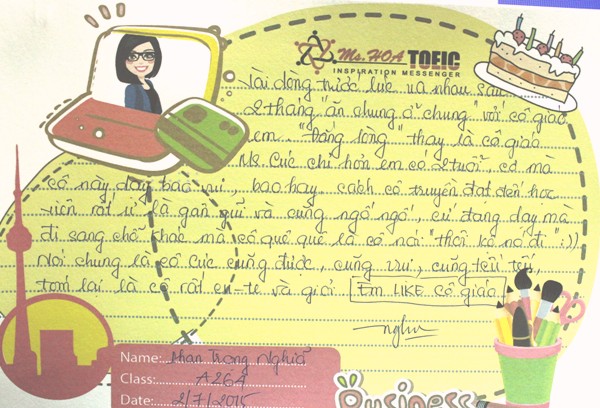 Ms. HOA TOEIC
INSPIRATION MESSENGER
Vài dòng trước lúc và nhau sau
2 tháng "ăn chung ở chung" với cô giáo
em. "Đắng lòng" thay là cô giáo
Ms Cúc chỉ hơn em có 2 tuổi, cơ mà
cô này dạy bao vui, bao hay, cách cô truyền đạt đến học
viên rất ư là gần gũi và cũng ngố ngố, cứ đang dạy mà
đi sang chỗ khác mà cô quê quê là cô nói "thôi kệ nó đi" :))
Nói chung là cô Cúc cũng được, cũng vui, cũng tếu tếu,
tóm lại là cô rất cu-te và giỏi. Em LIKE cô giáo
Nghĩa
Name: Phan Trọng Nghĩa
Class: A264
Date: 2/7/2015
Business